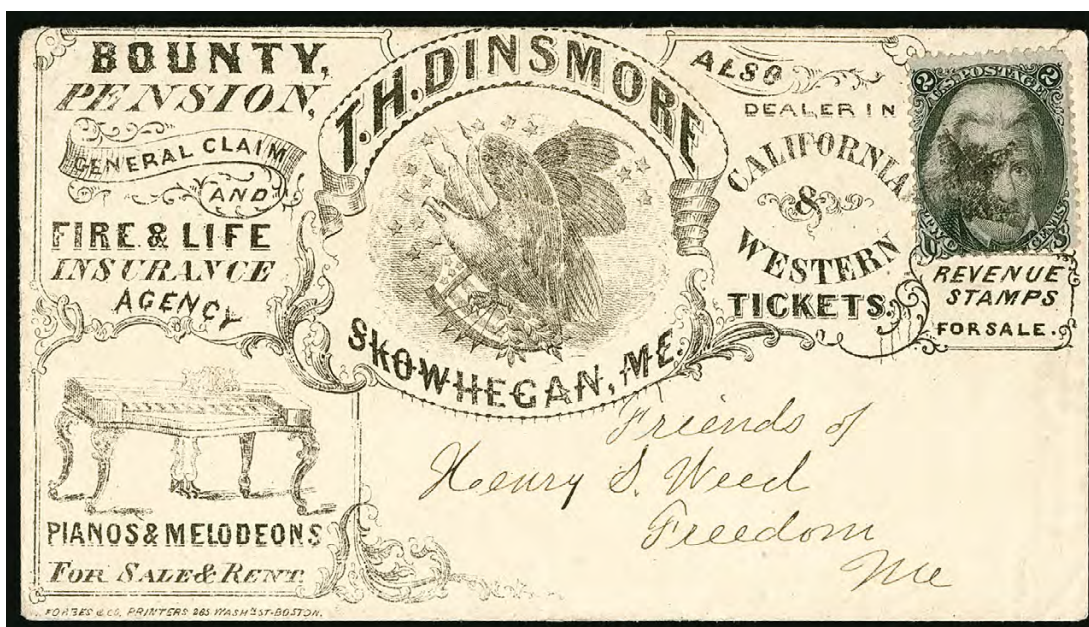 BOUNTY,
PENSION,
GENERAL CLAIM
AND
FIRE & LIFE
INSURANCE
AGENCY
T.H. DINSMORE
SKOWHEGAN, ME.
ALSO
DEALER IN
CALIFORNIA
&
WESTERN
TICKETS.
2 U.S. POSTAGE 2
TWO CENTS
REVENUE
STAMPS
FOR SALE.
PIANOS & MELODEONS
FOR SALE & RENT.
FORBES & CO. PRINTERS 265 WASHN ST-BOSTON.
Friends of
Henry S. Weed
Freedom
Me